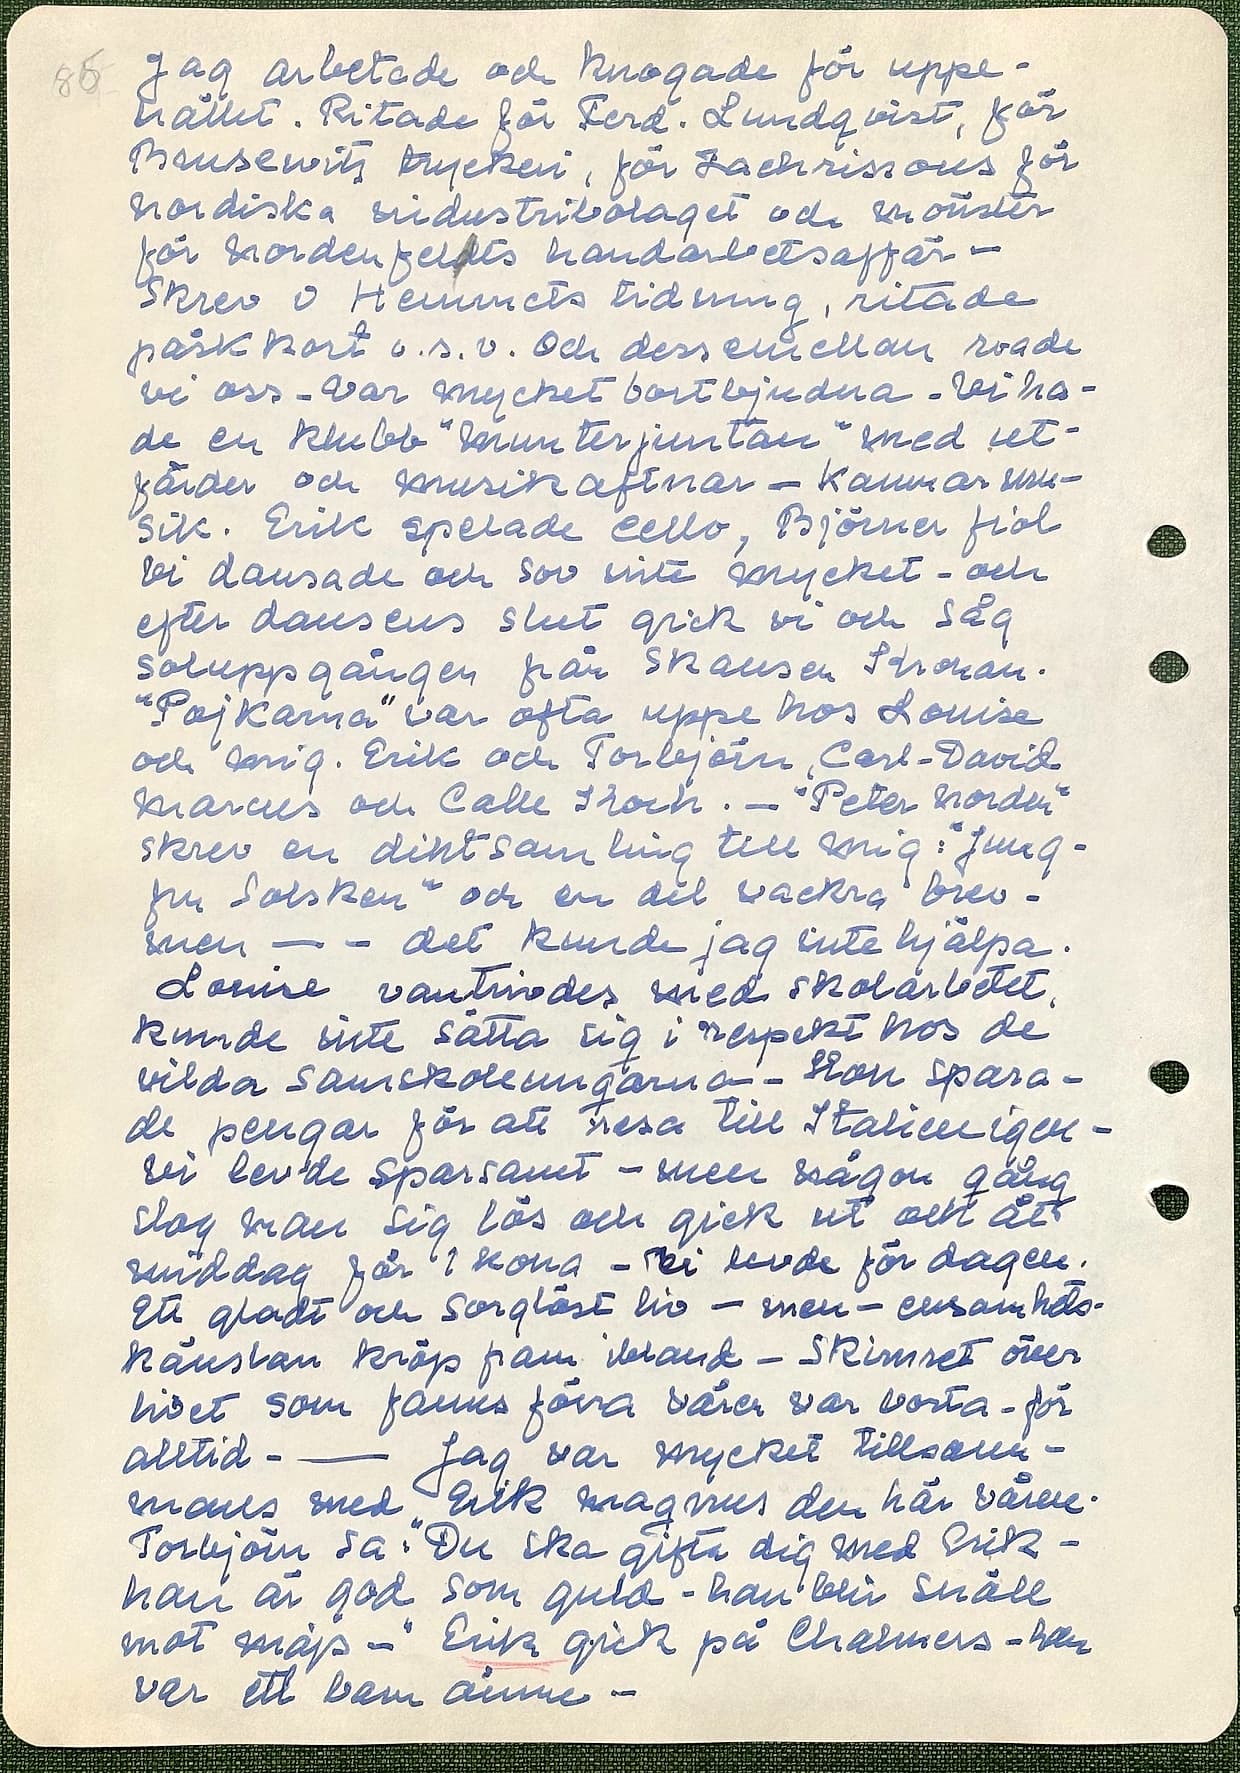 86
Jag arbetade och knogade för uppe-
hället. Ritade för Ferd. Lundqvist, för
Brusewitz tryckeri, för Zachrissons för
nordiska industribolaget och mönster
för Nordenfeldts handarbetsaffär –
Skrev i Hemmets tidning, ritade
påskkort o.s.v. Och dessemellan roade
vi oss – Var mycket bortbjudna – Vi ha-
de en klubb "Munterjuntan" med ut-
färder och musikaftnar – Kammarmu-
sik. Erik spelade cello, Björner fiol
Vi dansade och sov inte mycket – och
efter dansens slut gick vi och såg
soluppgången från Skansen Kronan.
"Pojkarna" var ofta uppe hos Louise
och mig. Erik och Torbjörn, Carl-David
Marcus och Calle Koch. – "Peter Norden"
skrev en diktsamling till mig: "Jung-
fru Solsken" och en del vackra brev –
men — – det kunde jag inte hjälpa.
Louise vantrivdes med skolarbetet,
kunde inte sätta sig i respekt hos de
vilda samskoleungarna – Hon spara-
de pengar för att resa till Italien igen –
Vi levde sparsamt – men någon gång
slog man sig lös och gick ut och åt
middag för 1 krona – Vi levde för dagen.
Ett gladt och sorglöst liv – men – ensamhets-
känslan kröp fram ibland – Skimret över
livet som fanns förra våren var borta – för
alltid – — Jag var mycket tillsam-
mans med Erik Magnus den här våren.
Torbjörn sa: "Du ska gifta dig med Erik –
han är god som guld – han blir snäll
mot majs –" Erik gick på Chalmers – han
var ett barn ännu –